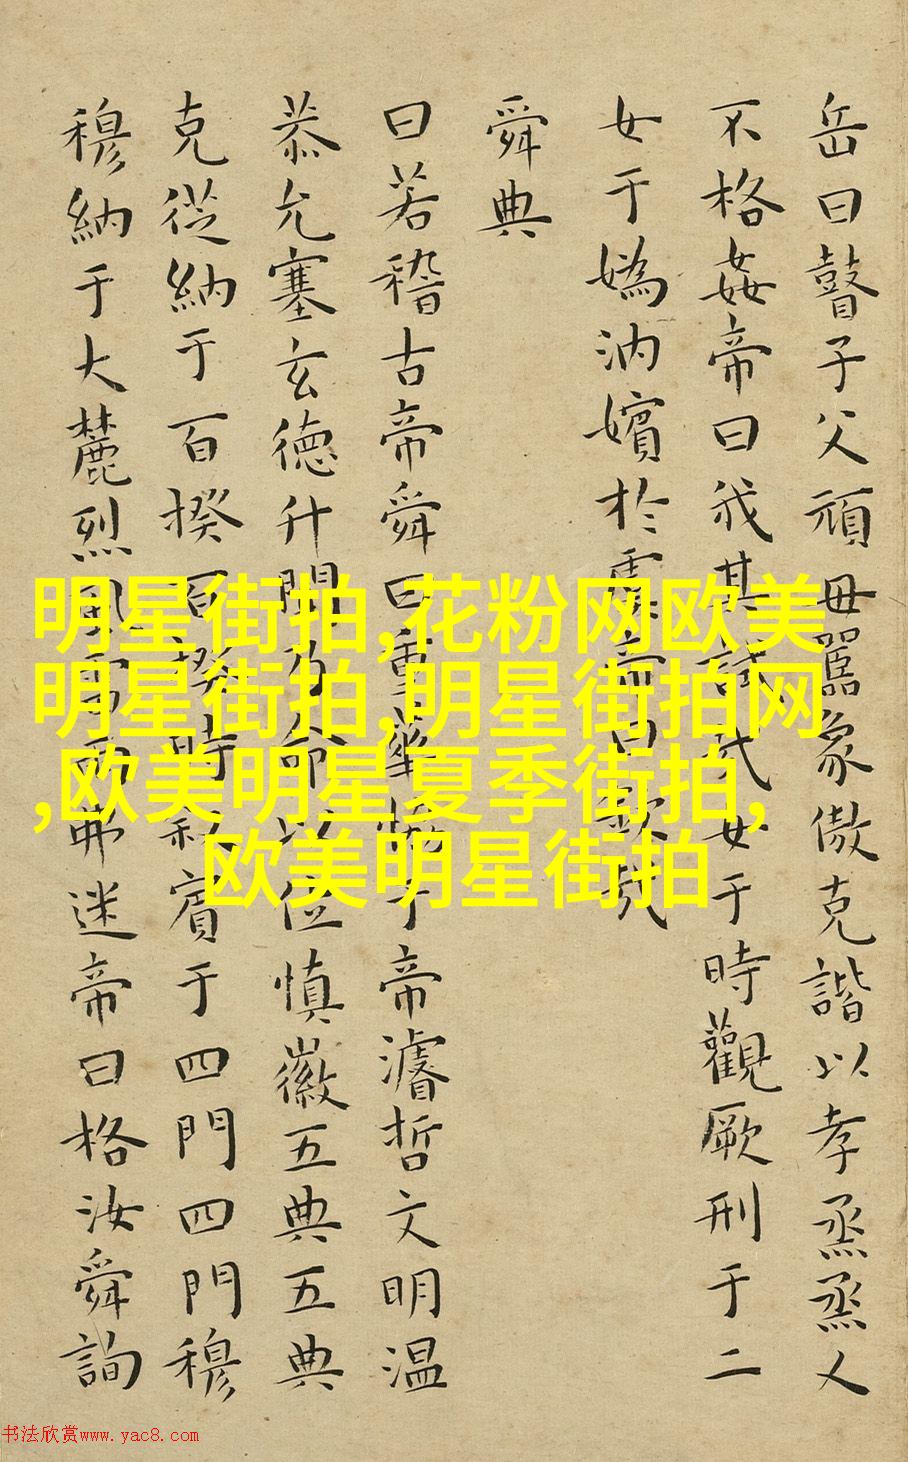 岳曰瞽子父頑毋嚚象傲克諧以孝烝烝乂
不格姦帝曰我其試哉女于時觀厥刑于二
女于媯汭嬪於虞帝曰欽哉
舜典
曰若稽古帝舜曰重華協于帝濬哲文明温
恭允塞玄德升聞乃命以位慎徽五典五典
克從納于百揆百揆時叙賓于四門四門穆
穆納于大麓烈風雷雨弗迷帝曰格汝舜詢
明星街拍,花粉网欧美
明星街拍,明星街拍网
,欧美明星夏季街拍,
欧美明星街拍
书法欣赏www.yac8.com